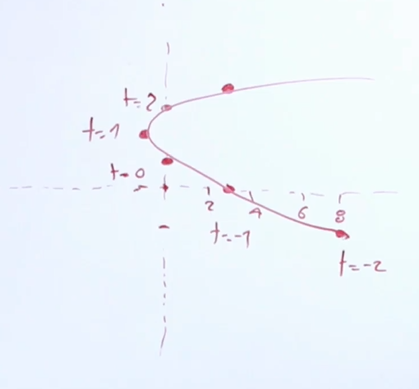 t=2
t=1
t=0
2 4 6 8
t=-1
t=-2